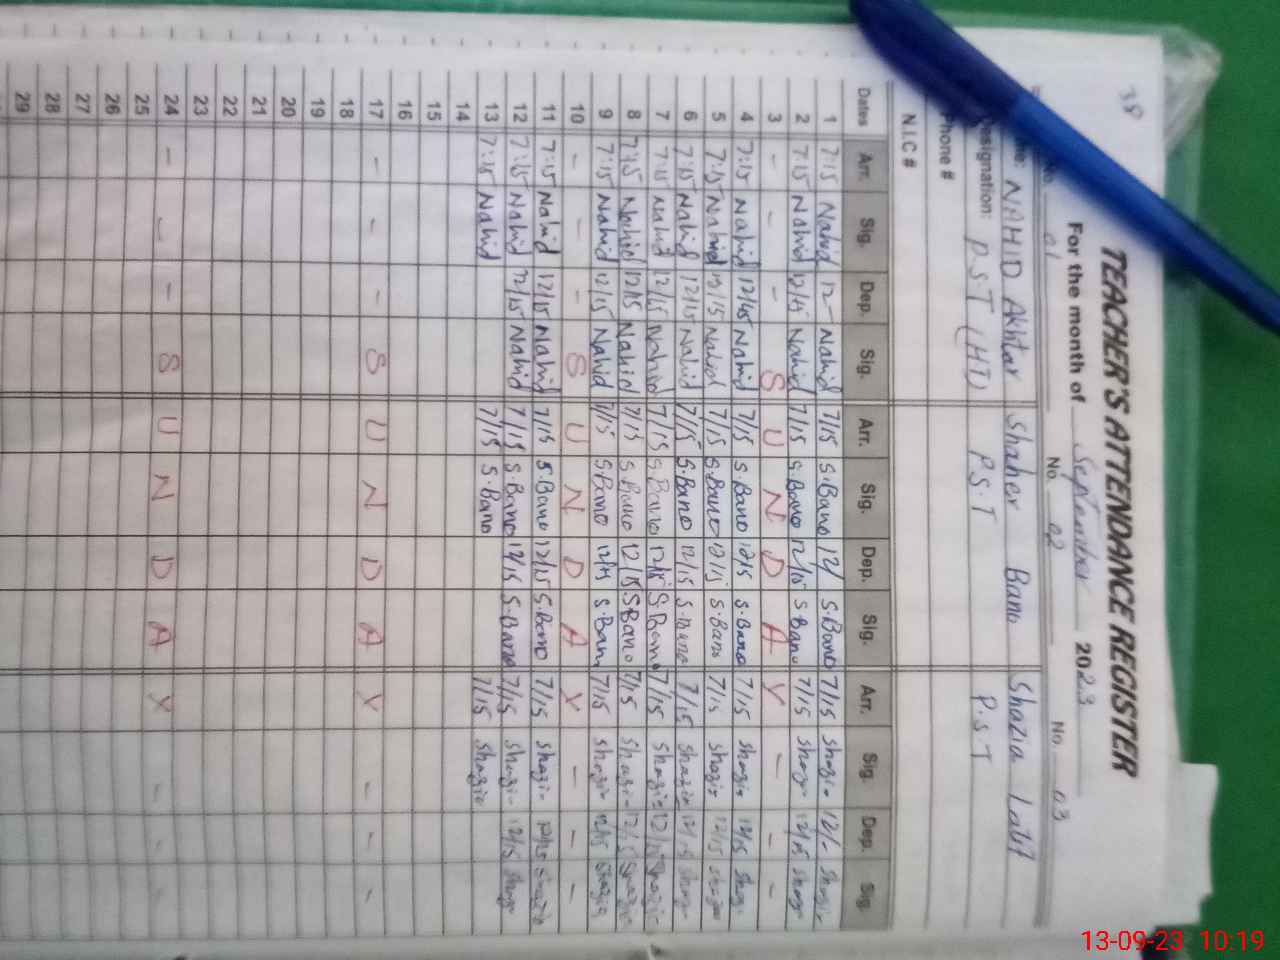 38
TEACHER'S ATTENDANCE REGISTER
For the month of September 2023
No. 01 No. 02 No. 03
NAHID Akhtar Shaher Bano Shazia Latif
Designation: P.S.T (HT) P.S.T P.S.T
Phone #
N.I.C #
Dates Arr. Sig. Dep. Sig. Arr. Sig. Dep. Sig. Arr. Sig. Dep. Sig.
1 7:15 Nahid 12- Nahid 7/15 S.Bano 12/ S.Bano 7/15 Shazi- 12/- Shazi-
2 7:15 Nahid 12/15 Nahid 7/15 S.Bano 12/15 S.Bano 7/15 Shazi- 12/15 Shazi-
3 - - - S U N D A Y - - -
4 7:15 Nahid 12/45 Nahid 7/15 S.Bano 12/15 S.Bano 7/15 Shazia 12/15 Shazi-
5 7:15 Nahid 12/15 Nahid 7/15 S.Bano 12/15 S.Bano 7/15 Shazia 12/15 Shazia
6 7:15 Nahid 12/15 Nahid 7/15 S.Bano 12/15 S.Bano 7/15 Shazia 12/15 Shazi-
7 7:15 Nahid 12/15 Nahid 7/15 S.Bano 12/15 S.Bano 7/15 Shazia 12/15 Shazia
8 7:15 Nahid 12/15 Nahid 7/15 S.Bano 12/15 S.Bano 7/15 Shazi- 12/15 Shazia
9 7:15 Nahid 12/15 Nahid 7/15 S.Bano 12/15 S.Bano 7/15 Shazia 12/15 Shazia
10 - - - S U N D A Y - - -
11 7:15 Nahid 12/15 Nahid 7/15 S.Bano 12/15 S.Bano 7/15 Shazi- 12/15 Shazia
12 7:15 Nahid 12/15 Nahid 7/15 S.Bano 12/15 S.Bano 7/15 Shazi- 12/15 Shazi-
13 7:15 Nahid 7/15 S.Bano 7/15 Shazia
14
15
16
17 - - - S U N D A Y - - -
18
19
20
21
22
23
24 - - - S U N D A Y - - -
25
26
27
28
29
13-09-23 10:19